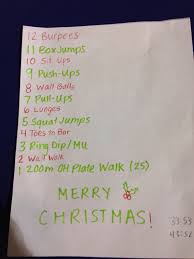 12 Burpees
11 Box Jumps
10 Sit Ups
9 Push-Ups
8 Wall Balls
7 Pull-Ups
6 Lunges
5 Squat Jumps
4 Toes to Bar
3 Ring Dip/MU
2 Wall Walk
1 200m OH Plate Walk (25)
MERRY
CHRISTMAS!
33:53